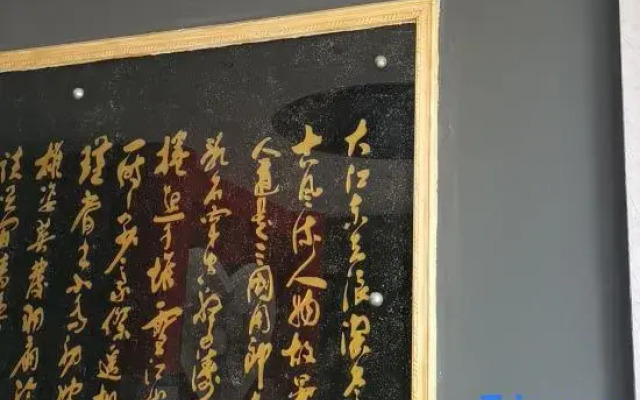 大江东去浪淘尽
古风流人物故垒
人道是三国周郎
乱石穿空惊涛
捲起千堆雪江
一时多少豪杰遥想
瑾当年小乔初嫁
雄姿英发羽扇
谈笑间樯橹